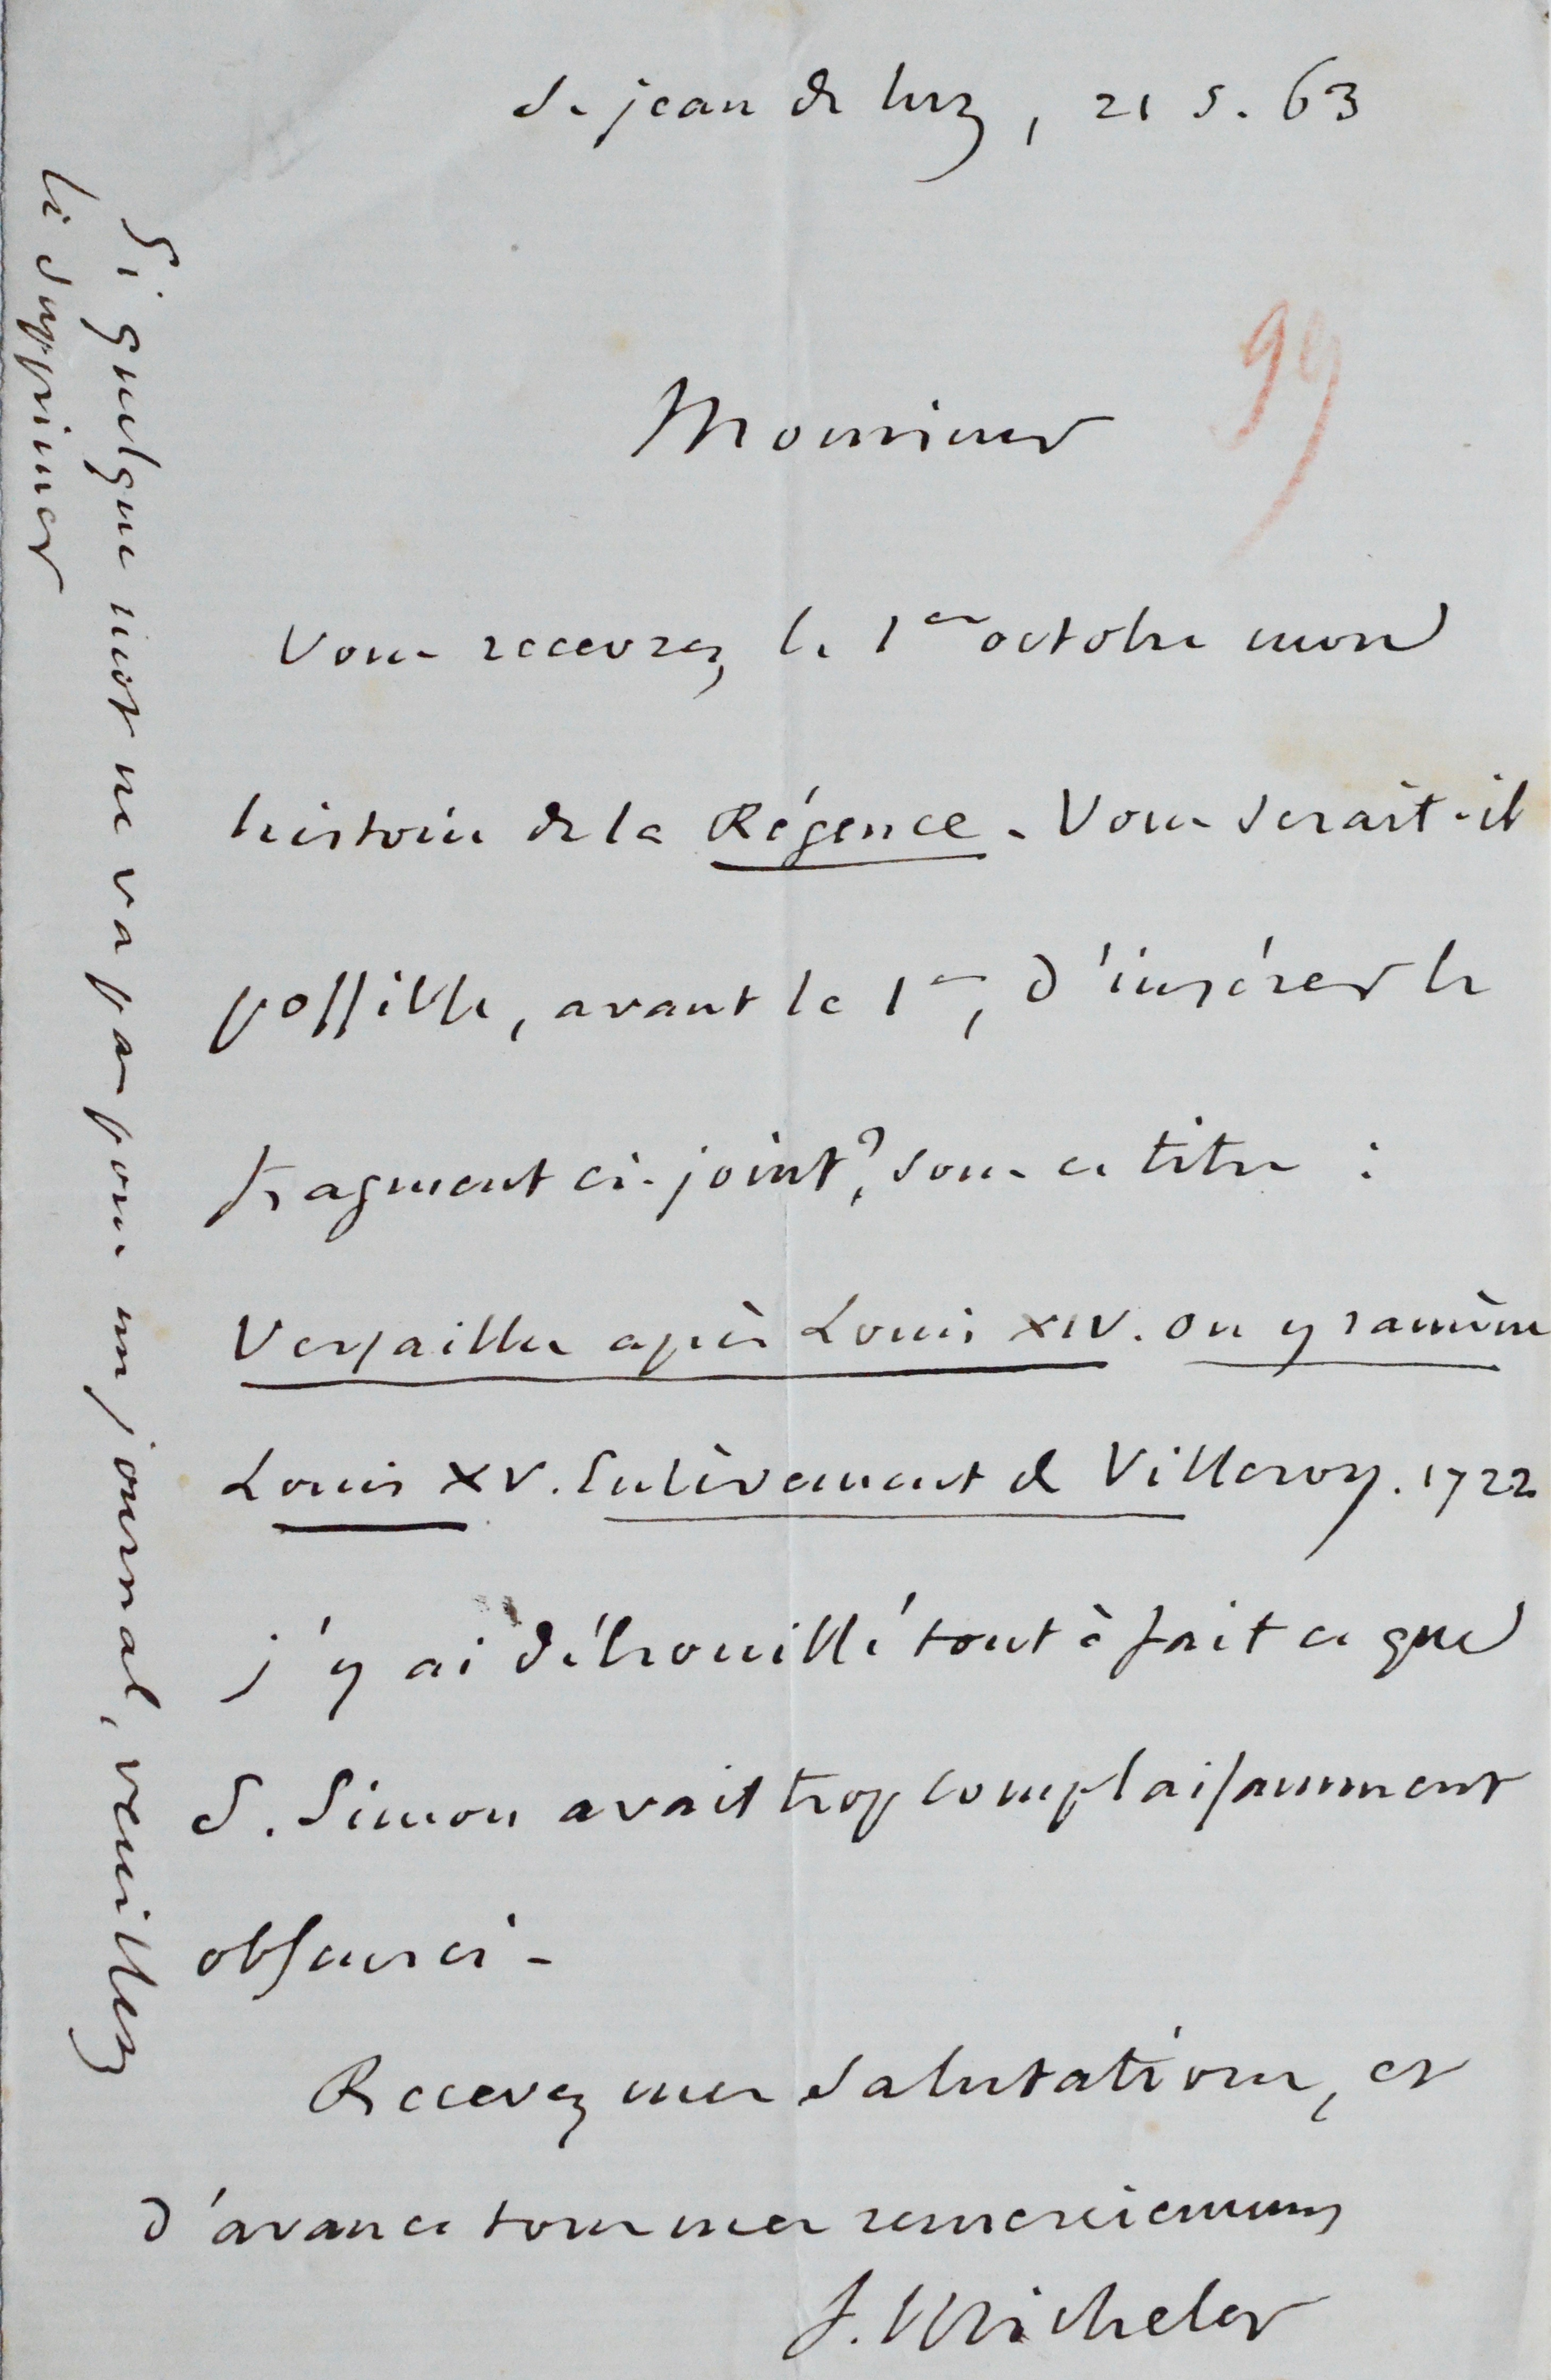 S. jean de luz, 21 s. 63
99
Monsieur
Vous recevrez le 1er octobre mon
histoire de la Régence. Vous serait-il
possible, avant le 1er, d'insérer le
fragment ci-joint?, sous ce titre :
Versailles après Louis XIV. on y ramène
Louis XV. Enlèvement de Villeroy. 1722
j'y ai débrouillé tout à fait ce que
S. Simon avait trop complaisamment
obscurci.
Recevez mes salutations, et
d'avance tous mes remerciemens
J. Michelet
Si quelque mot ne va pas pour un journal, veuillez
le supprimer